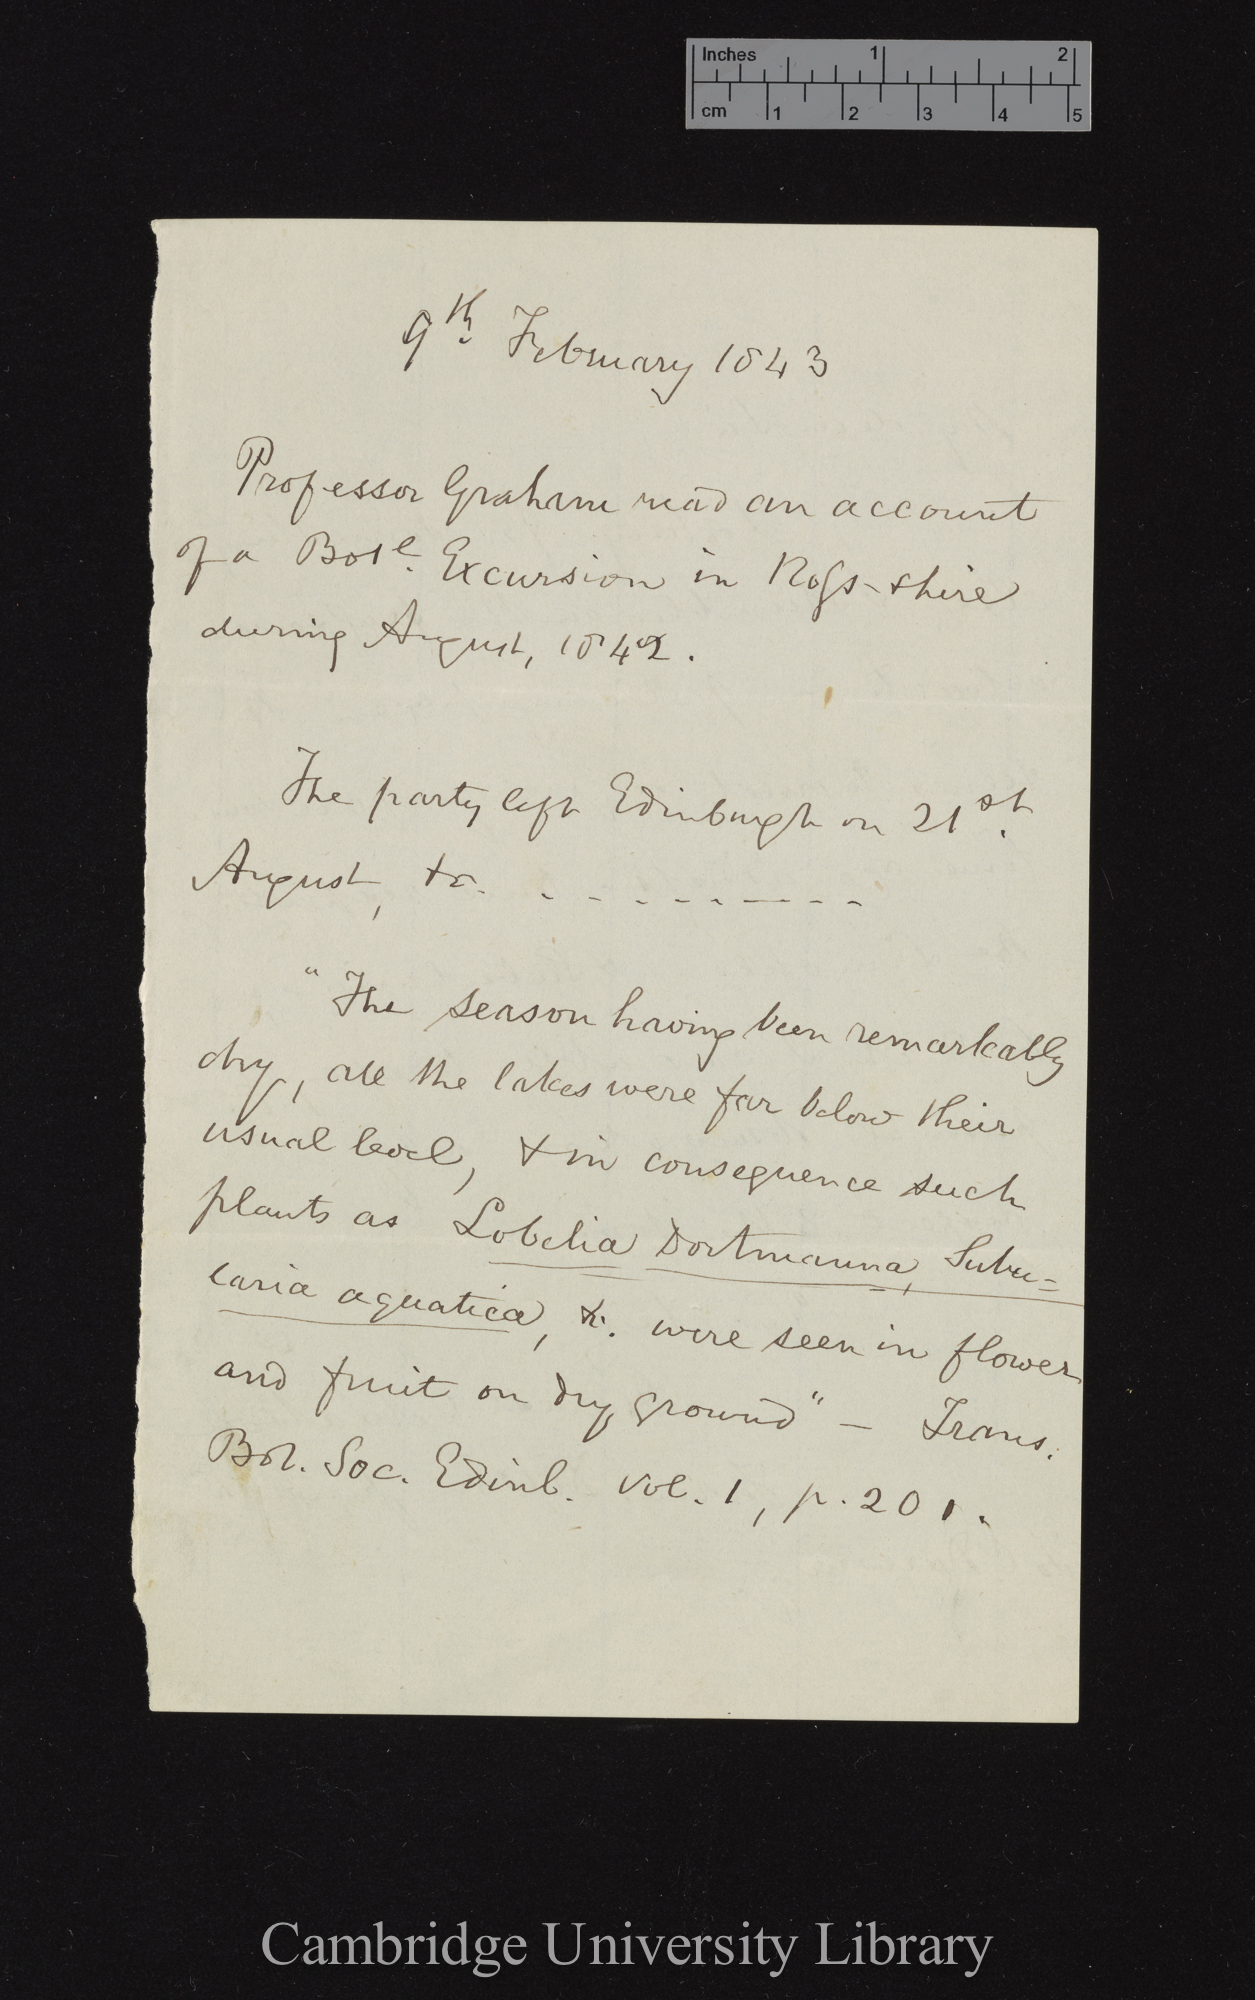 Inches 1 2
cm 1 2 3 4 5
9th. February 1843
Professor Graham read an account
of a Botl. Excursion in Roſs-shire
during August, 1842.
The party left Edinburgh on 21st.
August, &c. - - - - - - - - -
"The season having been remarkably
dry, all the lakes were far below their
usual level, & in consequence such
plants as Lobelia Dortmanna, Subu=
laria aquatica, &c. were seen in flower
and fruit on dry ground" — Trans.
Bot. Soc. Edinb. Vol. 1, p. 201.
Cambridge University Library